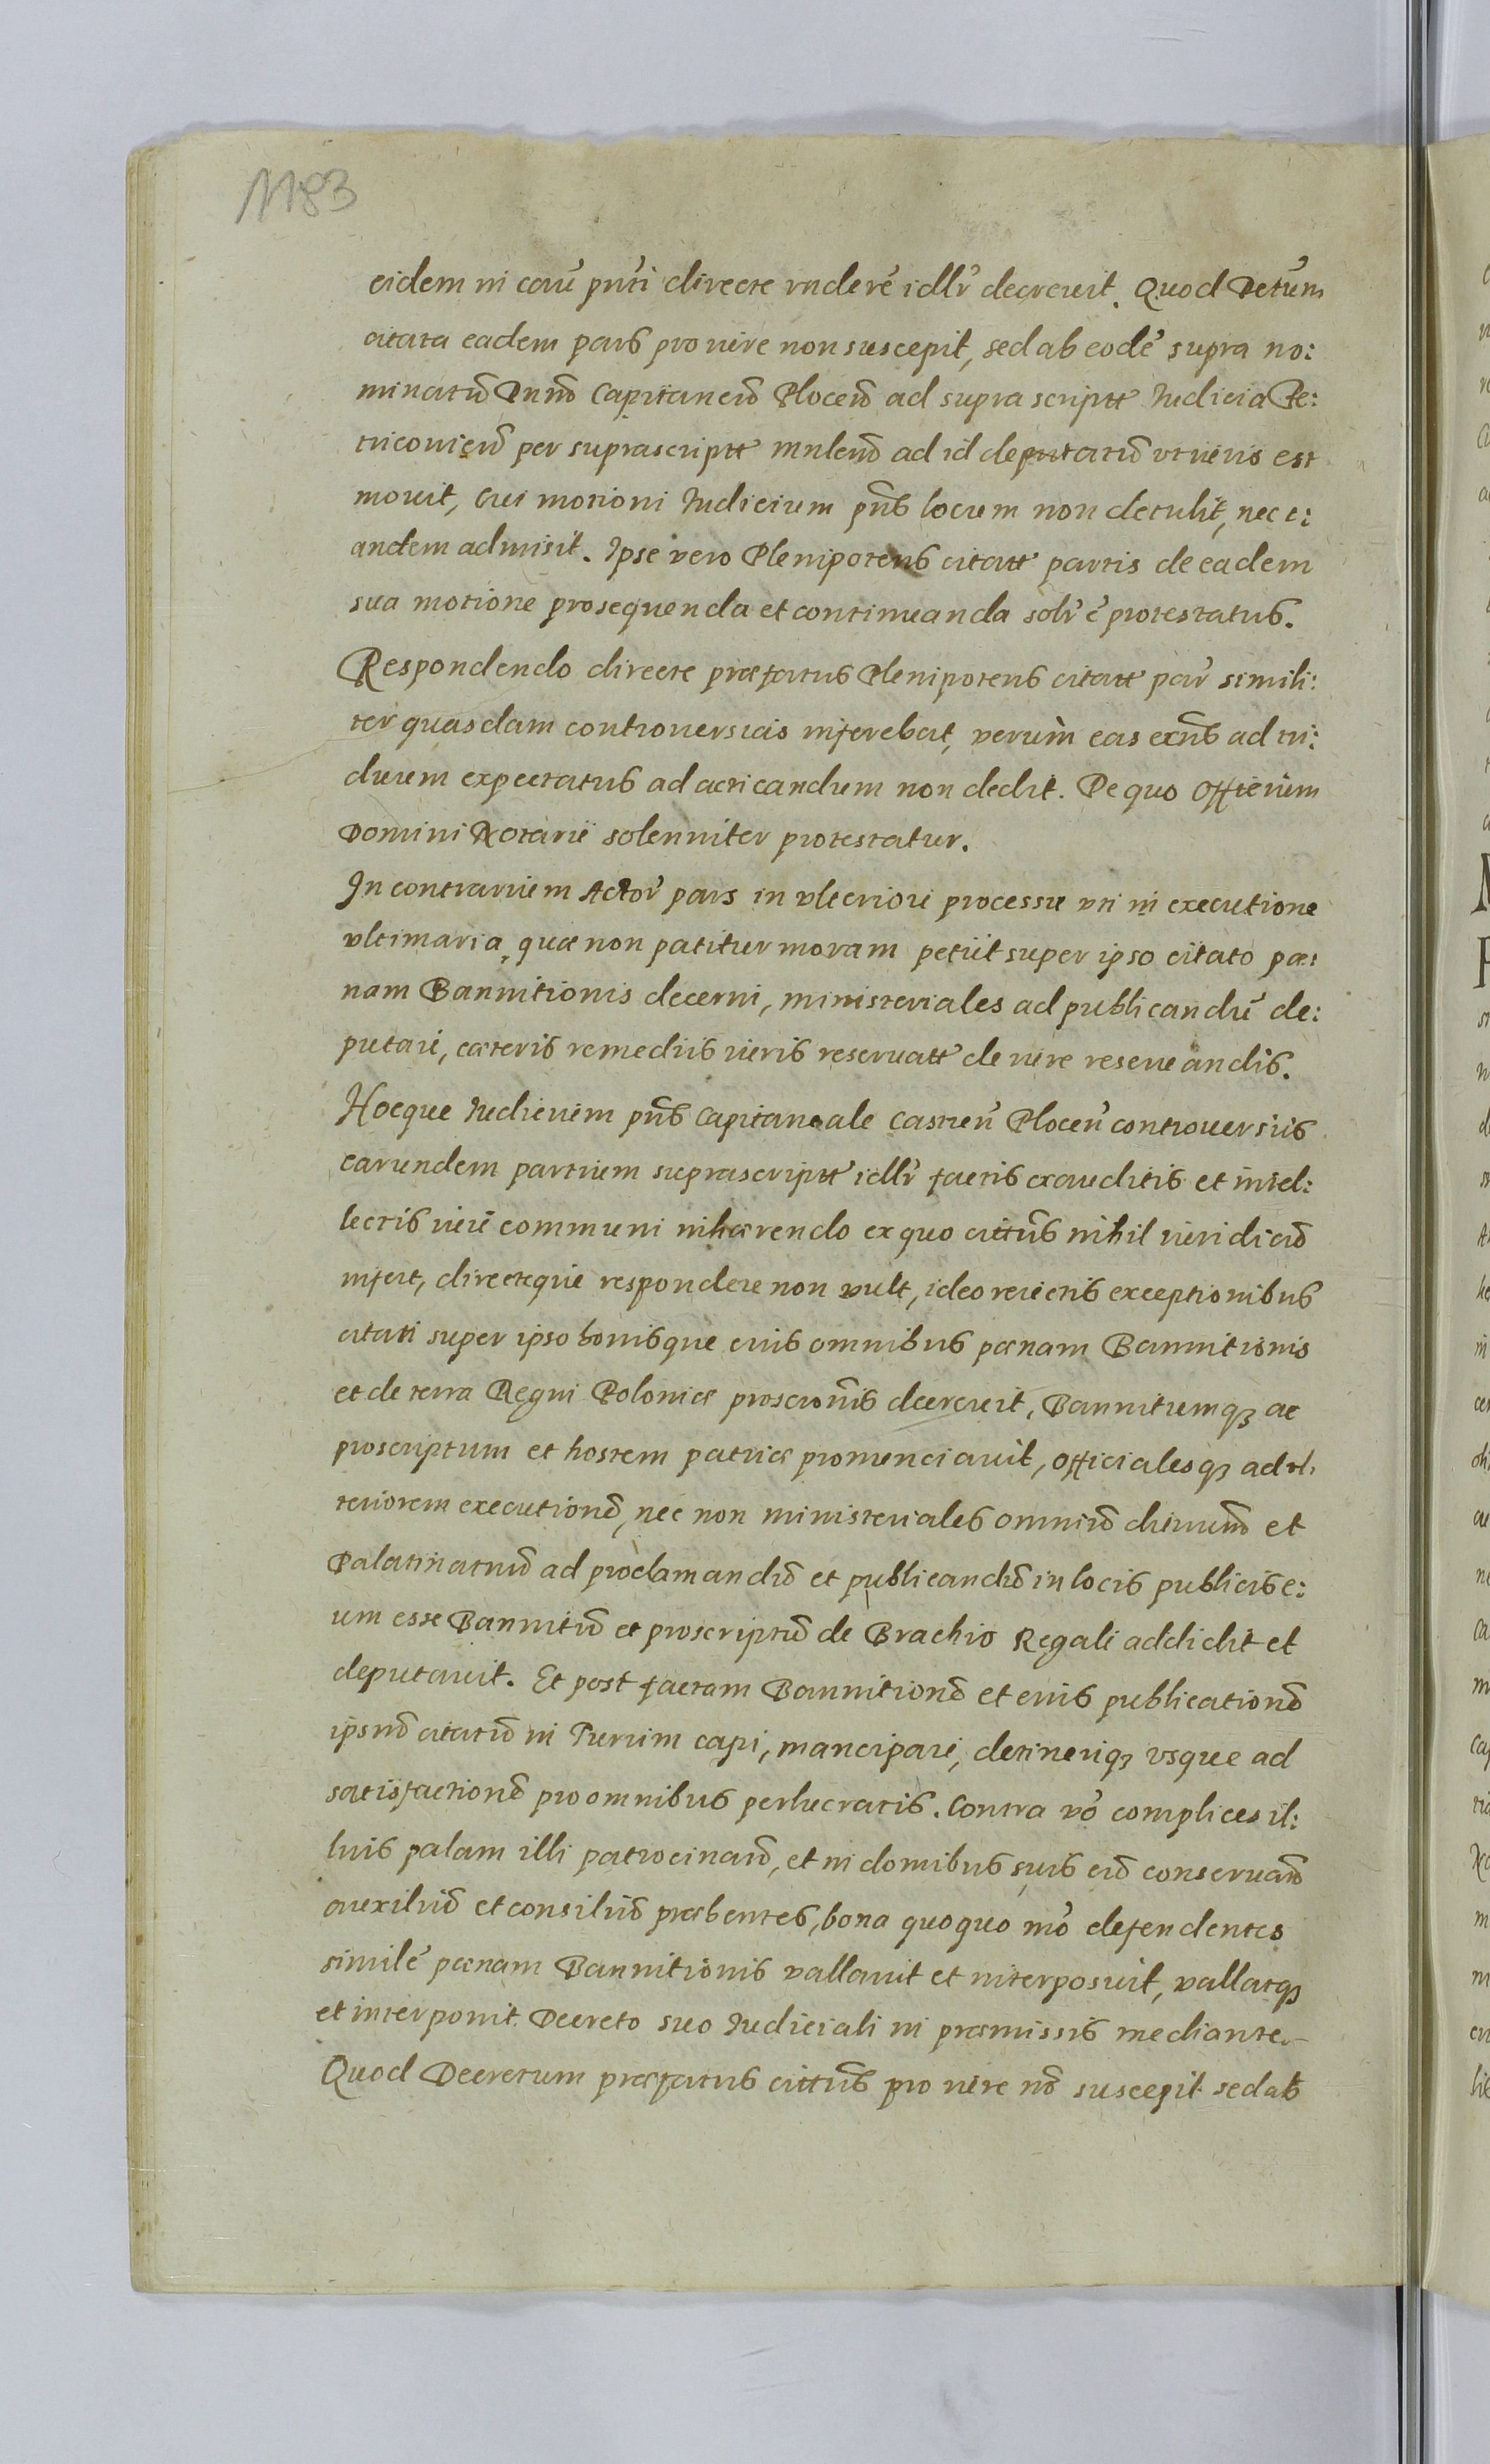 1183
eidem in cau͂ pn͂ti directe rndere͂ idllr͂ decrevit. Quod Detu͂m
citata eadem pars pro iure non suscepit, sed ab eode͂ supra no:
minatu͂ Dnn͂o Capitaneu͂ Plocen͂ ad supra scriptt Iudicia Pe:
tricovien͂ per suprascriptt mnlem͂ ad id deputatu͂ ut iuris est
movit, Cui motioni Iudicium pn͂s locum non detulit, nec e:
andem admisit. Ipse vero Plenipotens citatt partis de eadem
sua motione prosequenda et continuanda solr͂ e͂ protestatus.
Respondendo directe præfatus Plenipotens citatt par͂ simili:
ter quasdam controversias inferebat, verùm eas exn͂s ad tri:
duum expectatus ad acticandum non dedit. De quo Officium
Domini Notarii solenniter protestatur.
In contrarium Actor͂ pars in ulteriori processu uti in executione
ultimaria, quæ non patitur moram petiit super ipso citato pœ:
nam Bannitionis decerni, ministeriales ad publicandu͂ de:
putari, cæteris remediis iuris reservatt de iure reservandis.
Hocque Iudicium pn͂s Capitaneale Castren͂ Plocen͂ controversiis
earundem partium suprascriptt idllr͂ factis exauditis et intel:
lectis iuri communi inhærendo ex quo citt͂us nihil iuridicu͂
infert, directeque respondere non vult, ideo reiectis exceptionibus
citati super ipso bonisque eius omnibus pœnam Bannitionis
et de terra Regni Poloniæ proscrion͂is decrevit, Bannitumqꝫ ac
proscriptum et hostem patriæ pronunciavit, Officialesqꝫ ad ul:
teriorem executione͂, nec non ministeriales omniu͂ ch͂num͂ et
Palatinatuu͂ ad proclamandu͂ et publicandu͂ in locis publicis e:
um esse Bannitu͂ et proscriptu͂ de Brachio Regali addidit et
deputavit. Et post factam Bannitione͂ et eius publicatione͂
ipsum͂ citatu͂ in Turrim capi, mancipari, detineriqꝫ usque ad
satisfactione͂ pro omnibus perlucratis. Contra vo͂ complices il:
lius palam illi patrocinan͂, et in domibus suis eu͂ conservan͂
auxiliu͂ et consiliu͂ præbentes, bona quoquo mo͂ defendentes
simile͂ pœnam Bannitionis vallavit et interposuit, vallatqꝫ
et interponit Decreto suo Iudiciali in præmissis mediante.
Quod Decretum præfatus citt͂us pro iure no͂ suscepit sed ab